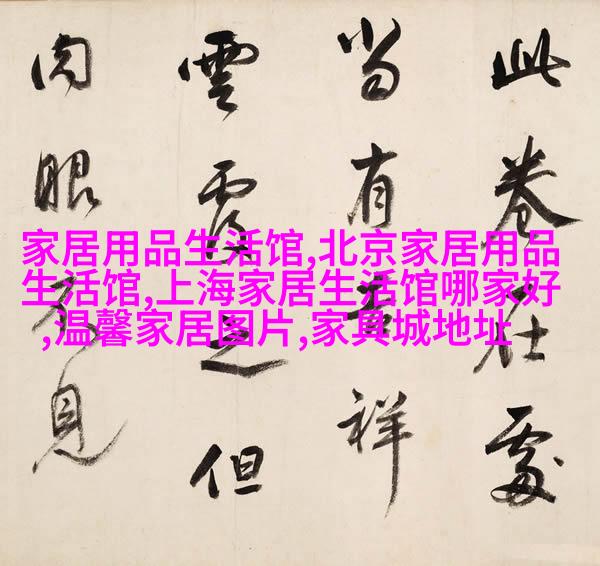 此卷在處
當有吉祥
雲覆之但
肉眼不見
家居用品生活馆,北京家居用品
生活馆,上海家居生活馆哪家好
,温馨家居图片,家具城地址